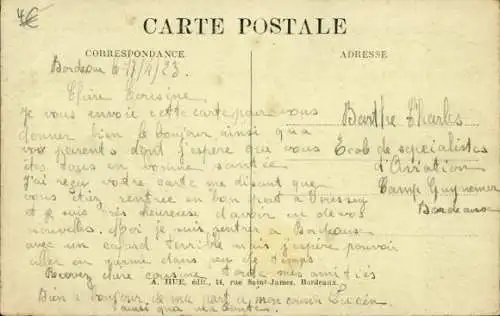 4€
CARTE POSTALE
CORRESPONDANCE
ADRESSE
Bordeau 17/4/23
Chère Cousine
Je vous envoie cette carte pour vous
donner bien le bonjour ainsi qu'a
vos parents dont j'espère que vous
êtes tous en bonne santée
J'ai reçu votre carte me disant que
vous étiez rentrée en bon part a
et je suis très heureuse d'avoir eu de vos
nouvelles. Moi je suis rentrer a Bordeaux
avec un cafard terrible mais j'espère pouvoir
aller en permie dans peu de temps
Recevez chère cousine toute mes amitiés
Bien le bonjour de ma part a mon cousin Lucien
ainsi qua ma tante.
Barthe Charles
Ecole de spécialistes
d'Aviation
Camp Guynemer
Bordeaux
A. HUE, édit., 14, rue Saint-James, Bordeaux.